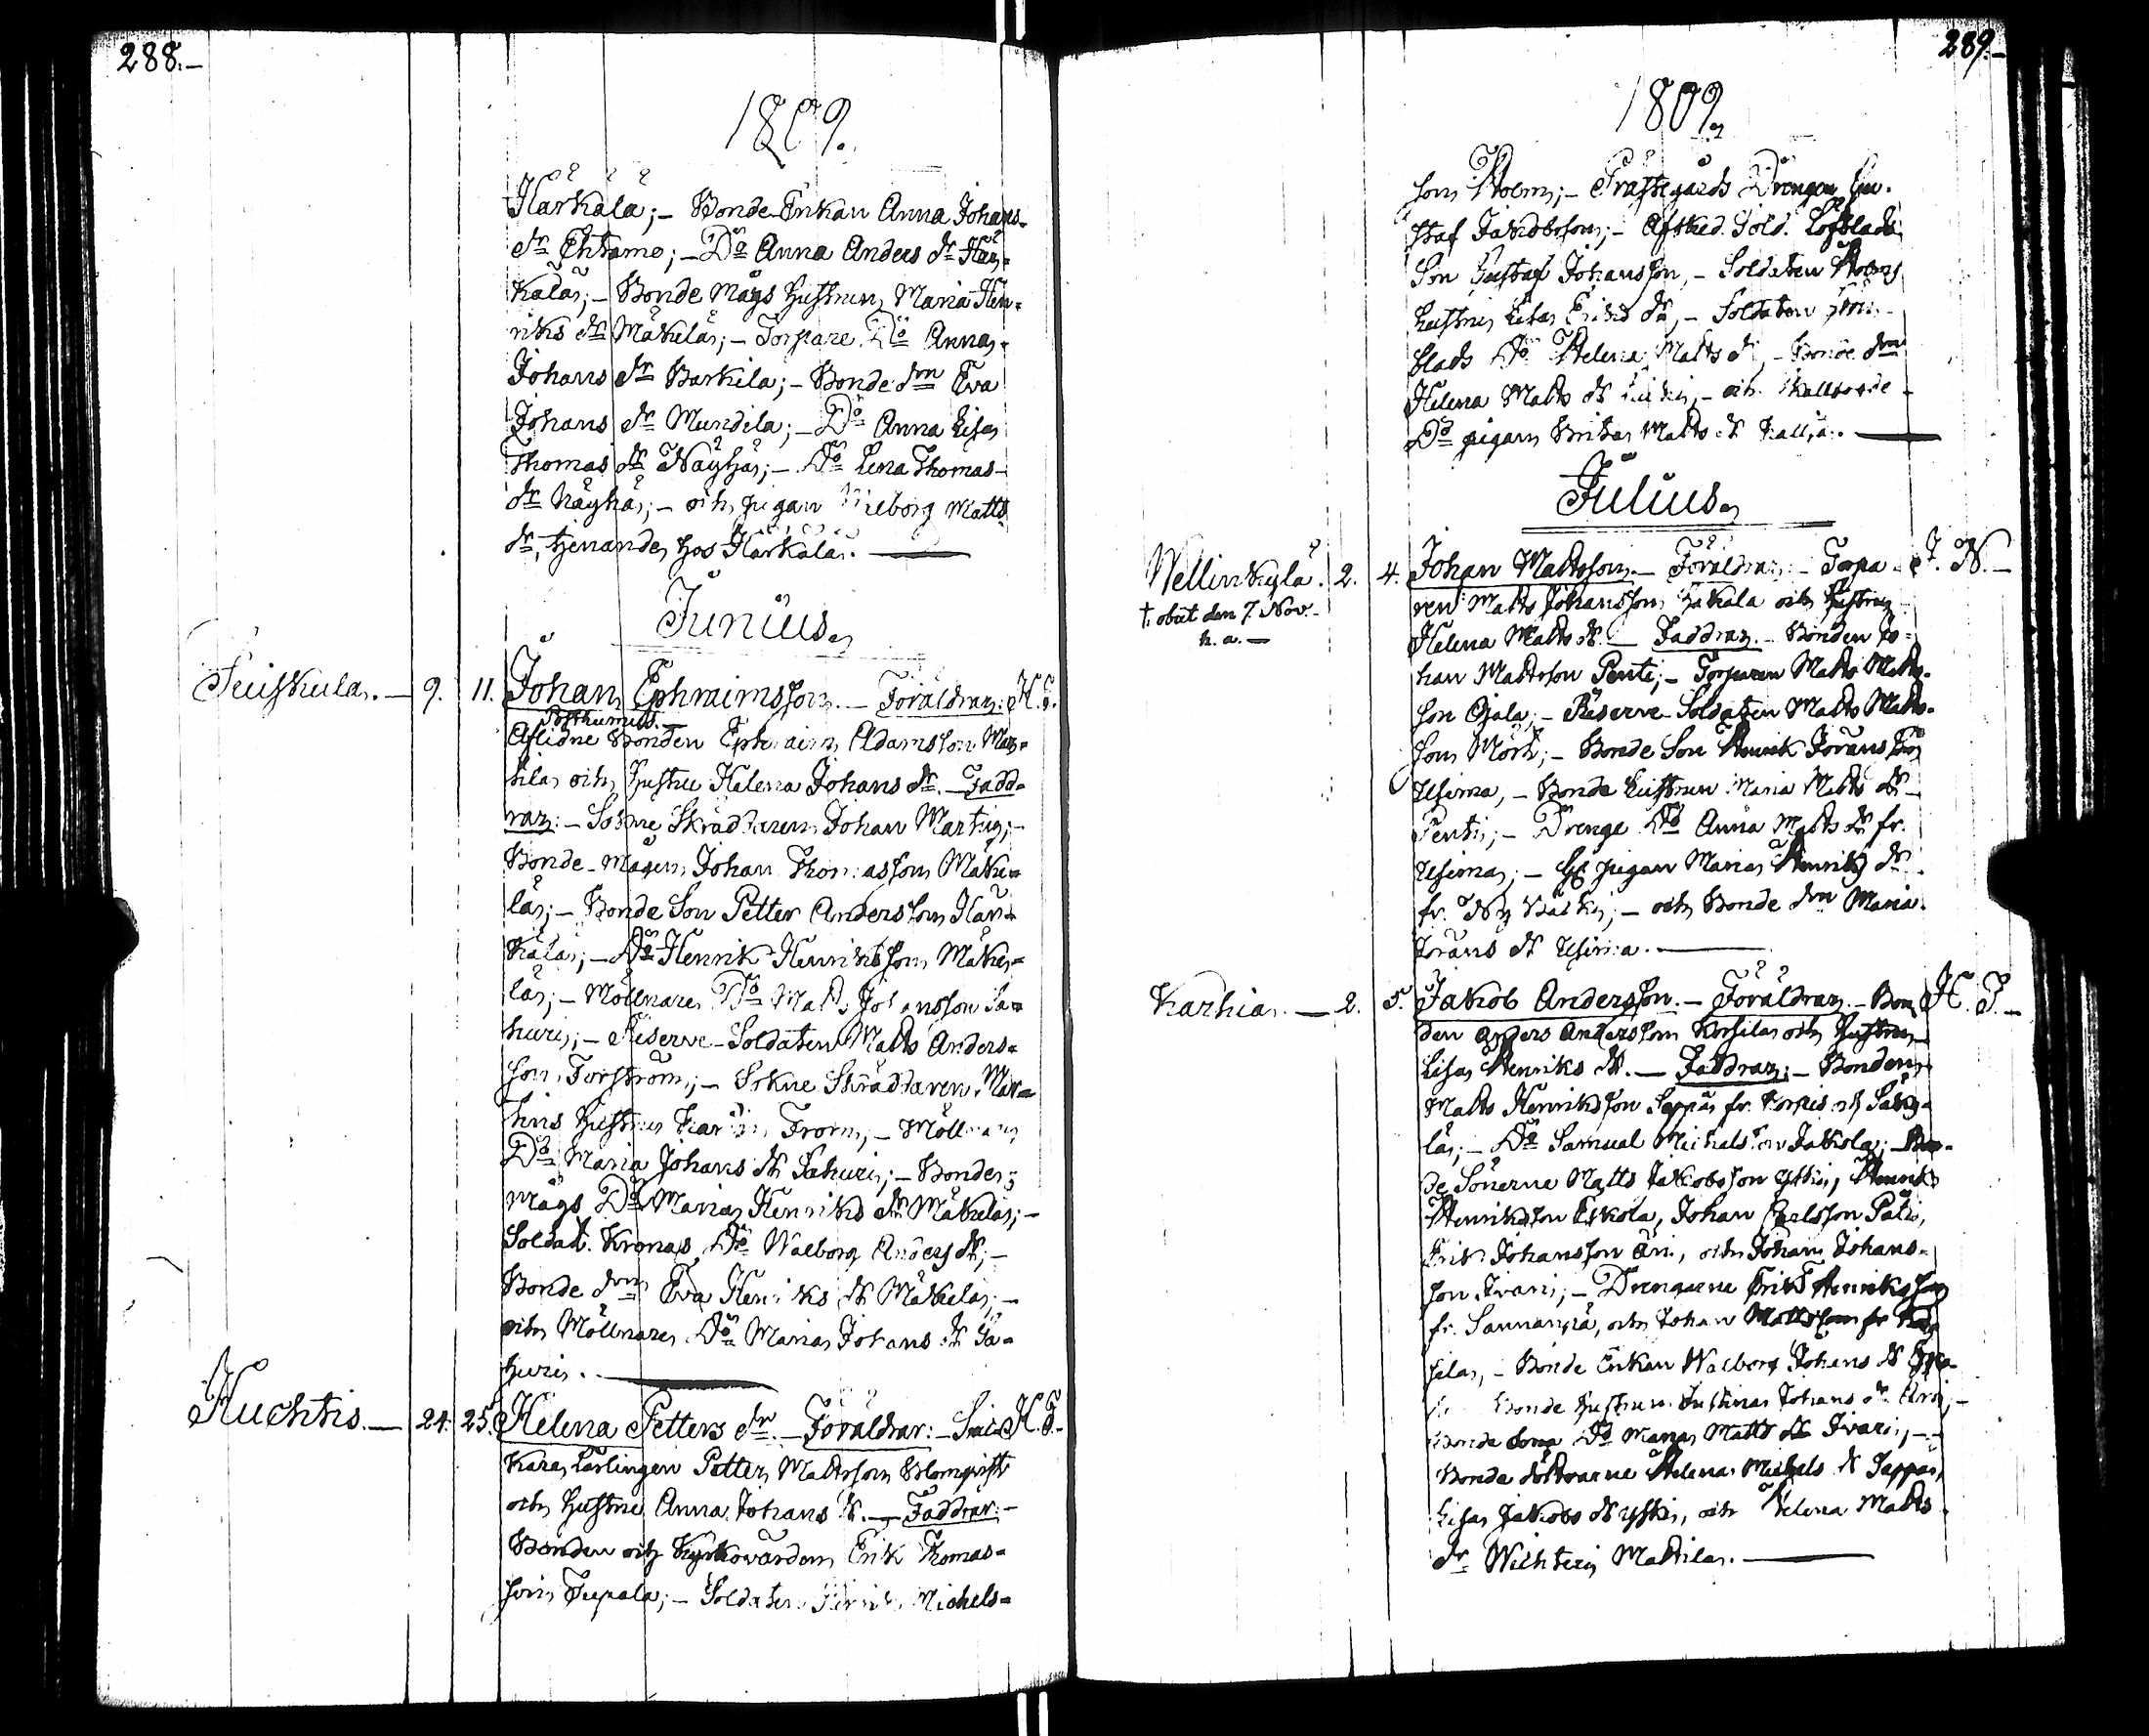 288.
1809.
Härkälä; – Bonde Enkan Anna Johans-
dr Ehtamo; – Do Anna Anders dr Här-
kälä; – Bonde Mågs Hustrun Maria Hen-
riks dr Mäkelä; – Torpare Do Anna
Johans dr Barkila; – Bonde dn Eva
Johans dr Mundila; – Do Anna Lisa
Thomas dr Näyhä; – Do Lena Thomas-
dr Näyhä; – och pigan Walborg Matts
dr, tjenande hos Härkälä.
Junius
9. 11. Johan Ephraimsson. – Föräldrar: H. T.
Posthumus. –
Aflidne Bonden Ephraim Adamsson Mar-
tila och Hustru Helena Johans dr. – Fadd-
rar: – Sokne Skräddaren Johan Martin; –
Bonde-Mågen Johan Thomasson Mäke-
lä; – Bonde Son Petter Andersson Här-
kälä; – Do Henrik Henriksson Mäke-
lä; – Möllnare Do Matts Johansson Sa-
huri; – Reserve-Soldaten Matts Anders-
son Forström; – Sokne Skräddaren Mar-
tins Hustru Karin From; – Möllnare
Do Maria Johans dr Sahuri; – Bonde
Mågs Do Maria Henriks dr Mäkelä; –
Soldat. Kronas Do Walborg Anders dr; –
Bonde dn Eva Henriks dr Mäkelä; –
och Möllnare Do Maria Johans dr Sa-
huri.
Huchtis. – 24. 25. Helena Petters dr. – Föräldrar: – H. T. –
Petter Mattsson Blomqvist
och Hustru Anna Johans dr. – Faddrar: –
Bonden och Kyrkovärden Erik Thomas-
son Tupala; – Soldaten Henrik Michels-
289. –
1809.
son Holm; – Prästegårds Drengen Gu-
staf Jakobsson; – Afsked. Sold. Löfblads
Son Gustaf Johansson, – Soldaten Holms
Hustru Lisa Eriks dr, – Soldaten
blads Do Helena Matts dr, – Bonde dn
Helena Matts dr – och
Do pigan Brita Matts dr
Julius
Wellinkylä. 2. 4. Johan Mattsson. – Föräldrar: – Torpa- J. N. –
† obiit den 7. Nov.
h. a. –
ren Matts Johansson Hakala och Hustru
Helena Matts dr. – Faddrar. – Bonden Jo-
han Mattsson Penti; – Torparen Matts Matts-
son Ojala; – Reserve-Soldaten Matts Matts-
son Mörk; – Bonde Son Henrik Jöransson
– Bonde Hustrun Maria Matts dr
Penti; – Drenge Do Anna Matts dr fr.
– pigan Maria Henriks dr
fr. – och Bonde dn Maria
Jörans dr
Karhia. – 2. 5. Jakob Andersson. – Föräldrar. – Bon- H. T. –
den Anders Andersson Korsila och Hustrun
Lisa Henriks dr. – Faddrar; – Bonden
Matts Henriksson Seppä fr.
lä; – Do Samuel Michelsson Jakola; – Bon-
de Sönerne Matts Jakobsson Henrik
Henriksson Eskola, Johan Carlsson Pätti,
Erik Johansson Äri, och Johan Johans-
son Ivari; – Drengarne Erik Henriksson
fr. Sannanpä, och Johan Mattsson fr
sila, – Bonde Enkan Walborg Johans dr
Bonde Hustrun Justina Johans dr Äri; –
Bonde Do Maria Matts dr Ivari; –
Bonde döttrarne Helena Michels dr Seppä,
Lisa Jakobs dr och Helena Matts
dr Wichteri Mattila.